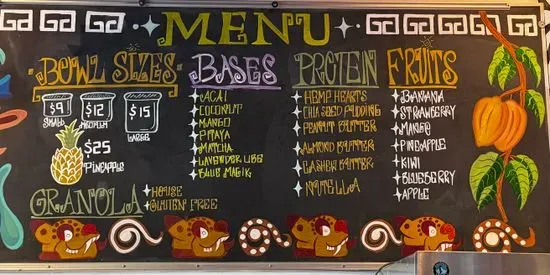 MENU
BOWL SIZES
$9
$12
$15
SMALL
MEDIUM
LARGE
$25
PINEAPPLE
GRANOLA
HOUSE
GLUTEN FREE
BASES
ACAI
COCONUT
MANGO
PITAYA
MATCHA
LAVENDER UBE
BLUE MAGIK
PROTEIN
HEMP HEARTS
CHIA SEED PUDDING
PEANUT BUTTER
ALMOND BUTTER
CASHEW BUTTER
NUTELLA
FRUITS
BANANA
STRAWBERRY
MANGO
PINEAPPLE
KIWI
BLUEBERRY
APPLE